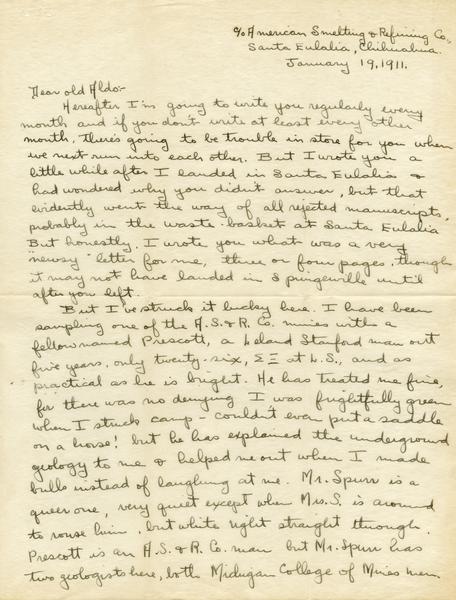 c/o American Smelting & Refining Co.,
Santa Eulalia, Chihuahua.
January 19, 1911.
Dear old Aldo:-
Hereafter I'm going to write you regularly every
month and if you don't write at least every other
month, there's going to be trouble in store for you when
we next run into each other. But I wrote you a
little while after I landed in Santa Eulalia &
had wondered why you didn't answer, but that
evidently went the way of all rejected manuscripts,
probably in the waste-basket at Santa Eulalia
But honestly, I wrote you what was a very
"newsy" letter for me, three or four pages, though
it may not have landed in Springerville until
after you left.
But I've struck it lucky here. I have been
sampling one of the A.S. & R. Co. mines with a
fellow named Prescott, a Leland Stanford man out
five years, only twenty-six, ΣΞ at L.S., and as
practical as he is bright. He has treated me fine,
for there was no denying I was frightfully green
when I struck camp - couldn't even put a saddle
on a horse! but he has explained the underground
geology to me & helped me out when I made
bulls instead of laughing at me. Mr. Spurr is a
queer one, very quiet except when Mrs. S. is around
to rouse him, but white right straight through.
Prescott is an A.S. & R. Co. man but Mr. Spurr has
two geologists here, both Michigan College of Mines men.